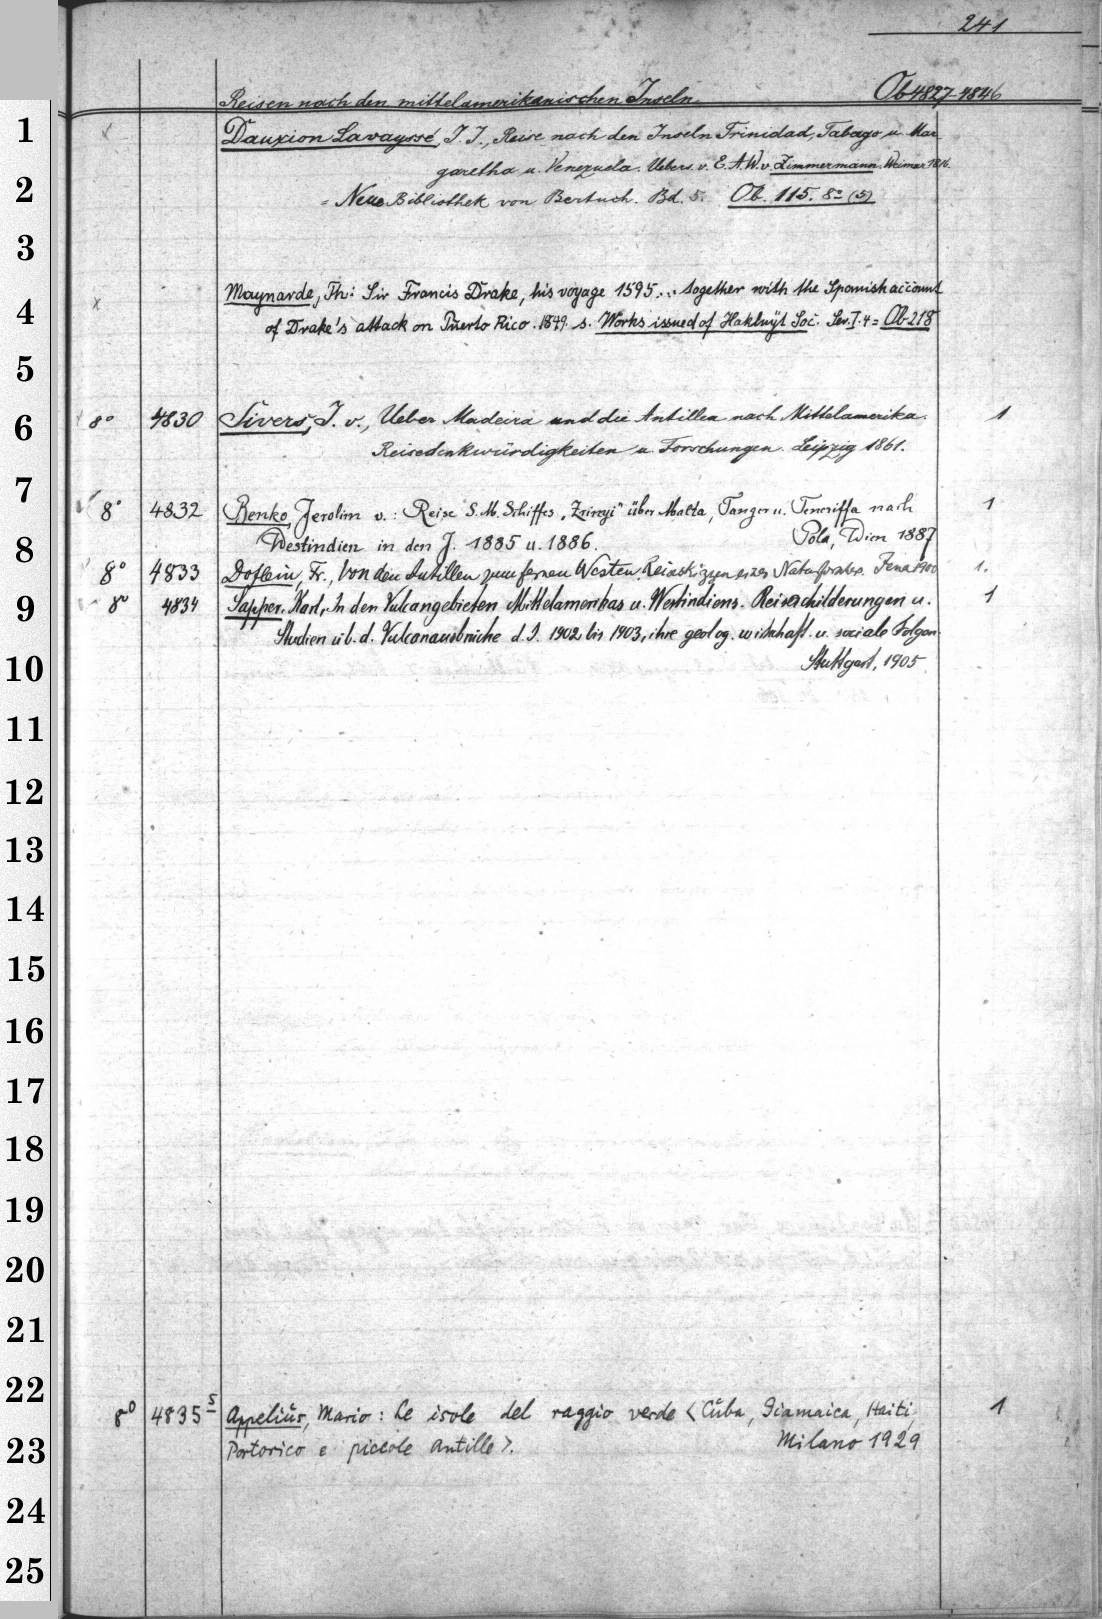 241
Reisen nach den mittelamerikanischen Inseln. Ob 4827-4846
Dauxion Lavayssé, J. J., Reise nach den Inseln Trinidad, Tabago u. Mar
garetha u. Venezuela. Uebers. v. E. A. W. v. Zimmermann. Weimar 1816.
= Neue Bibliothek von Bertuch. Bd. 5. Ob. 115. 8° (5)
Maynarde, Th: Sir Francis Drake, his voyage 1595... together with the Spanish account
of Drake's attack on Puerto Rico. 1849. s. Works issued of Hakluyt Soc. Ser. I. 4 = Ob 218
8° 4830 Sivers, J. v., Ueber Madeira und die Antillen nach Mittelamerika. 1
Reisedenkwürdigkeiten u. Forschungen. Leipzig 1861.
8° 4832 Benko, Jerolim v.: Reise S. M. Schiffes „Zrinyi" über Malta, Tanger u. Teneriffa nach 1
Westindien in den J. 1885 u. 1886. Pola, Wien 1887
8° 4833 Doflein, Fr., Von den Antillen zum fernen Westen. Reiseskizzen eines Naturforschers. Jena 1900 1.
8° 4834 Sapper, Karl, In den Vulcangebieten Mittelamerikas u. Westindiens. Reiseschilderungen u. 1
Studien üb. d. Vulcanausbrüche d. J. 1902 bis 1903, ihre geolog. wirtschaft. u. sociale Folgen.
Stuttgart, 1905
8° 4835 5 Appelius, Mario: Le isole del raggio verde <Cuba, Giamaica, Haiti, 1
Portorico e piccole Antille>. Milano 1929
1
2
3
4
5
6
7
8
9
10
11
12
13
14
15
16
17
18
19
20
21
22
23
24
25